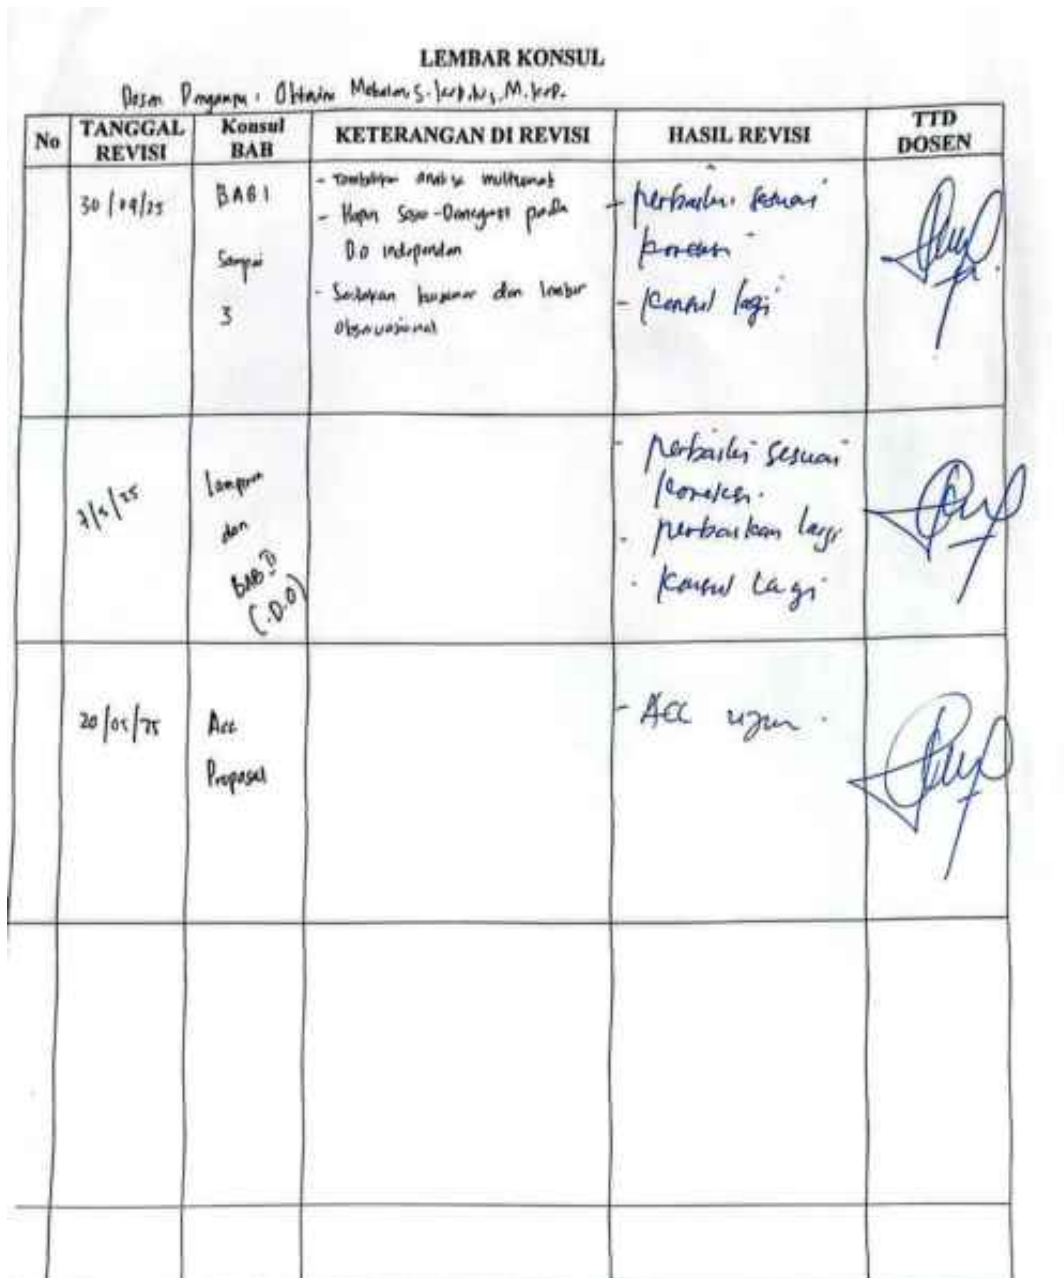 LEMBAR KONSUL
Dosen Pengampu : M.kep.
No
TANGGAL REVISI
Konsul BAB
KETERANGAN DI REVISI
HASIL REVISI
TTD DOSEN
30/04/25
BAB 1
Sampai
3
- Tambahkan analisa multivariat
- pada
D.O independen
- dan lembar
Observasional
- perbaiki sesuai
koreksi
- Konsul lagi
7/5/25
Lampiran
dan
BAB
(D.O)
- perbaiki sesuai
koreksi.
- perbaikan lagi
- Konsul lagi
20/05/25
Acc
Proposal
- ACC ujian.